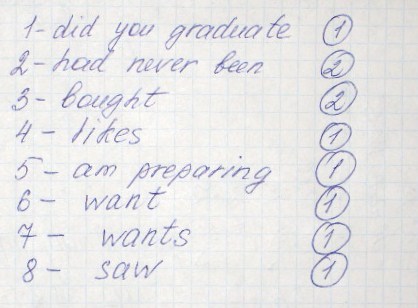 1- did you graduate 1
2- had never been 2
3- bought 2
4- likes 1
5- am preparing 1
6- want 1
7- wants 1
8- saw 1